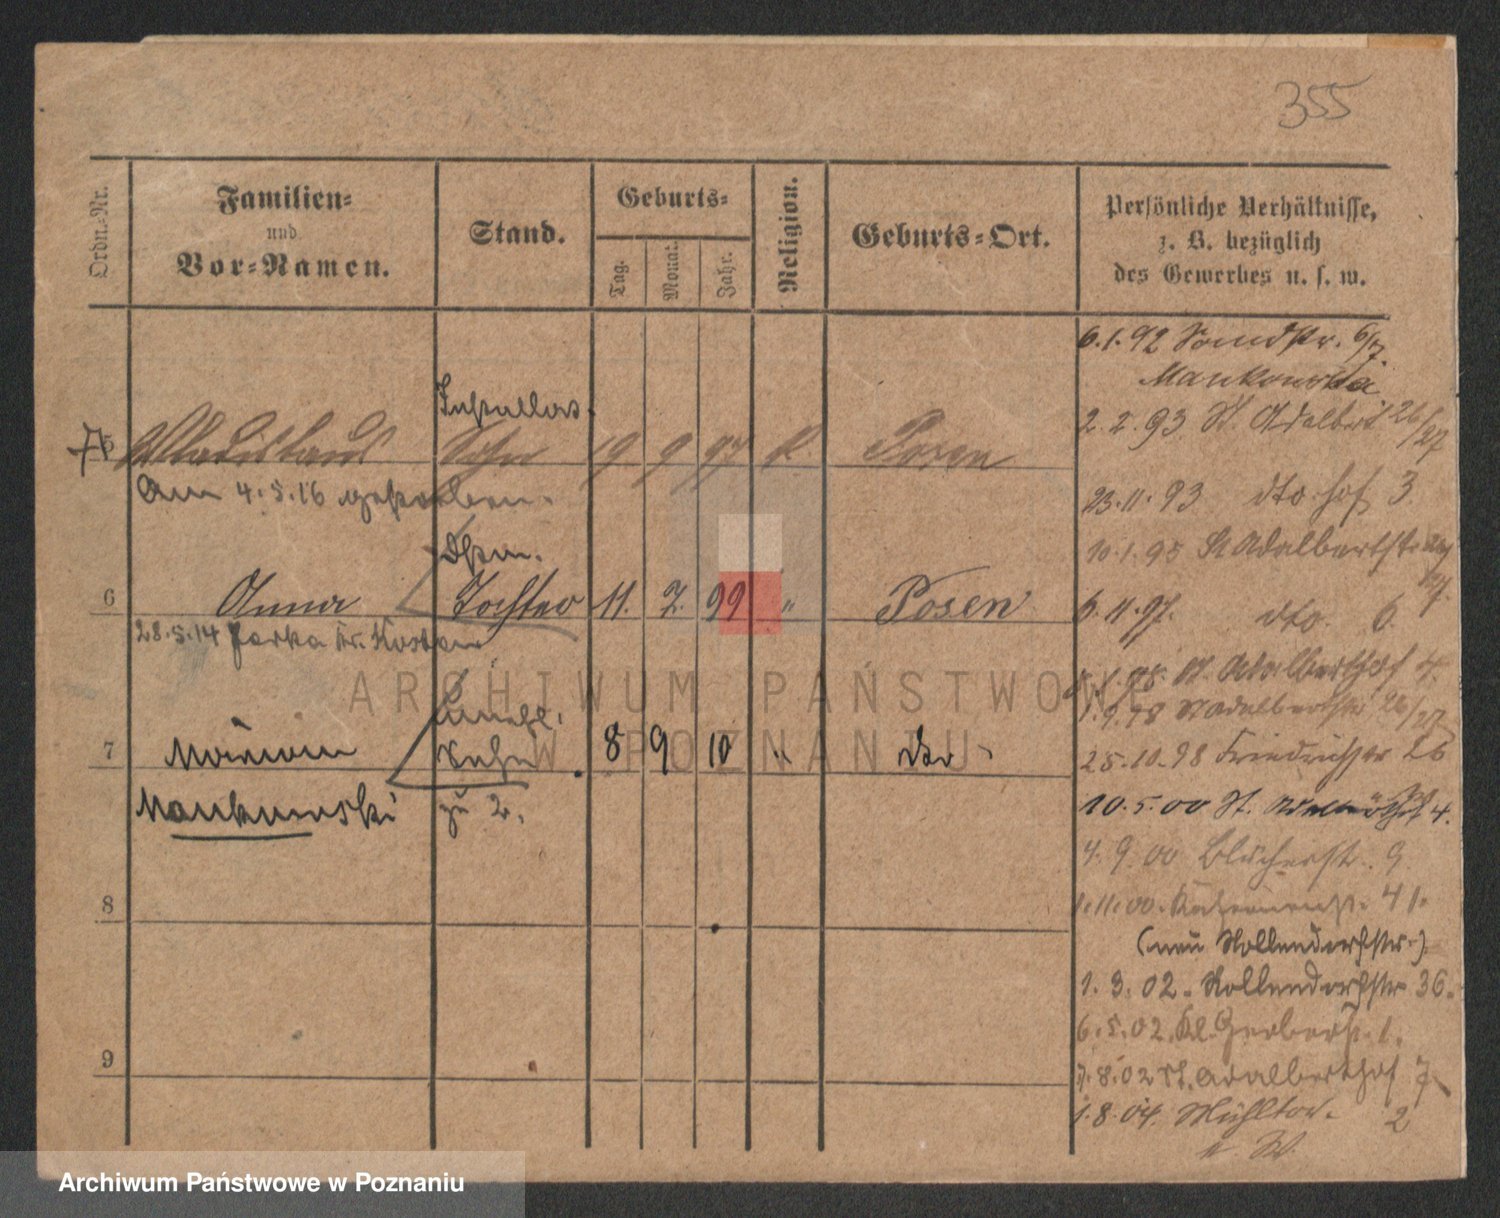 355
Ordn.-Nr.
Familien-
und
Vor-Namen.
Stand.
Geburts-
Tag.
Monat.
Jahr.
Religion.
Geburts-Ort.
Persönliche Verhältnisse,
z. B. bezüglich
des Gewerbes u. s. w.
5 Wladislaus Sohn 19 9 97 k. Posen
Am 4.5.16 gestorben.
6 Anna Tochter 11. 7. 99 " Posen
28.5.14 Kr. Kosten
unehl.
7 Marian Sohn 8 9 10 " dto
Mankowski zu 2.
8
9
6.1.92 Sandstr. 6/7.
Mankowska
2.2.93 St. Adalbert 26/27
23.11.93 dto hof 3
10.1.95 St Adalbertstr.
6.11.97. dto. 6.
1.98. St. Adalberthof 4.
1.9.98 St Adalbertstr 26/27
25.10.98 Friedrichstr 26
10.5.00 St. Adalberthof 4.
4.9.00 Blücherstr. 9
1.11.00. 41.
(neu Nollendorfstr.)
1.3.02. Nollendorfstr 36.
6.5.02. Kl. Gerberstr. 1.
7.8.02 St. Adalberthof 7
1.8.04. Mühltor- 2
ARCHIWUM PAŃSTWOWE
W POZNANIU
Archiwum Państwowe w Poznaniu